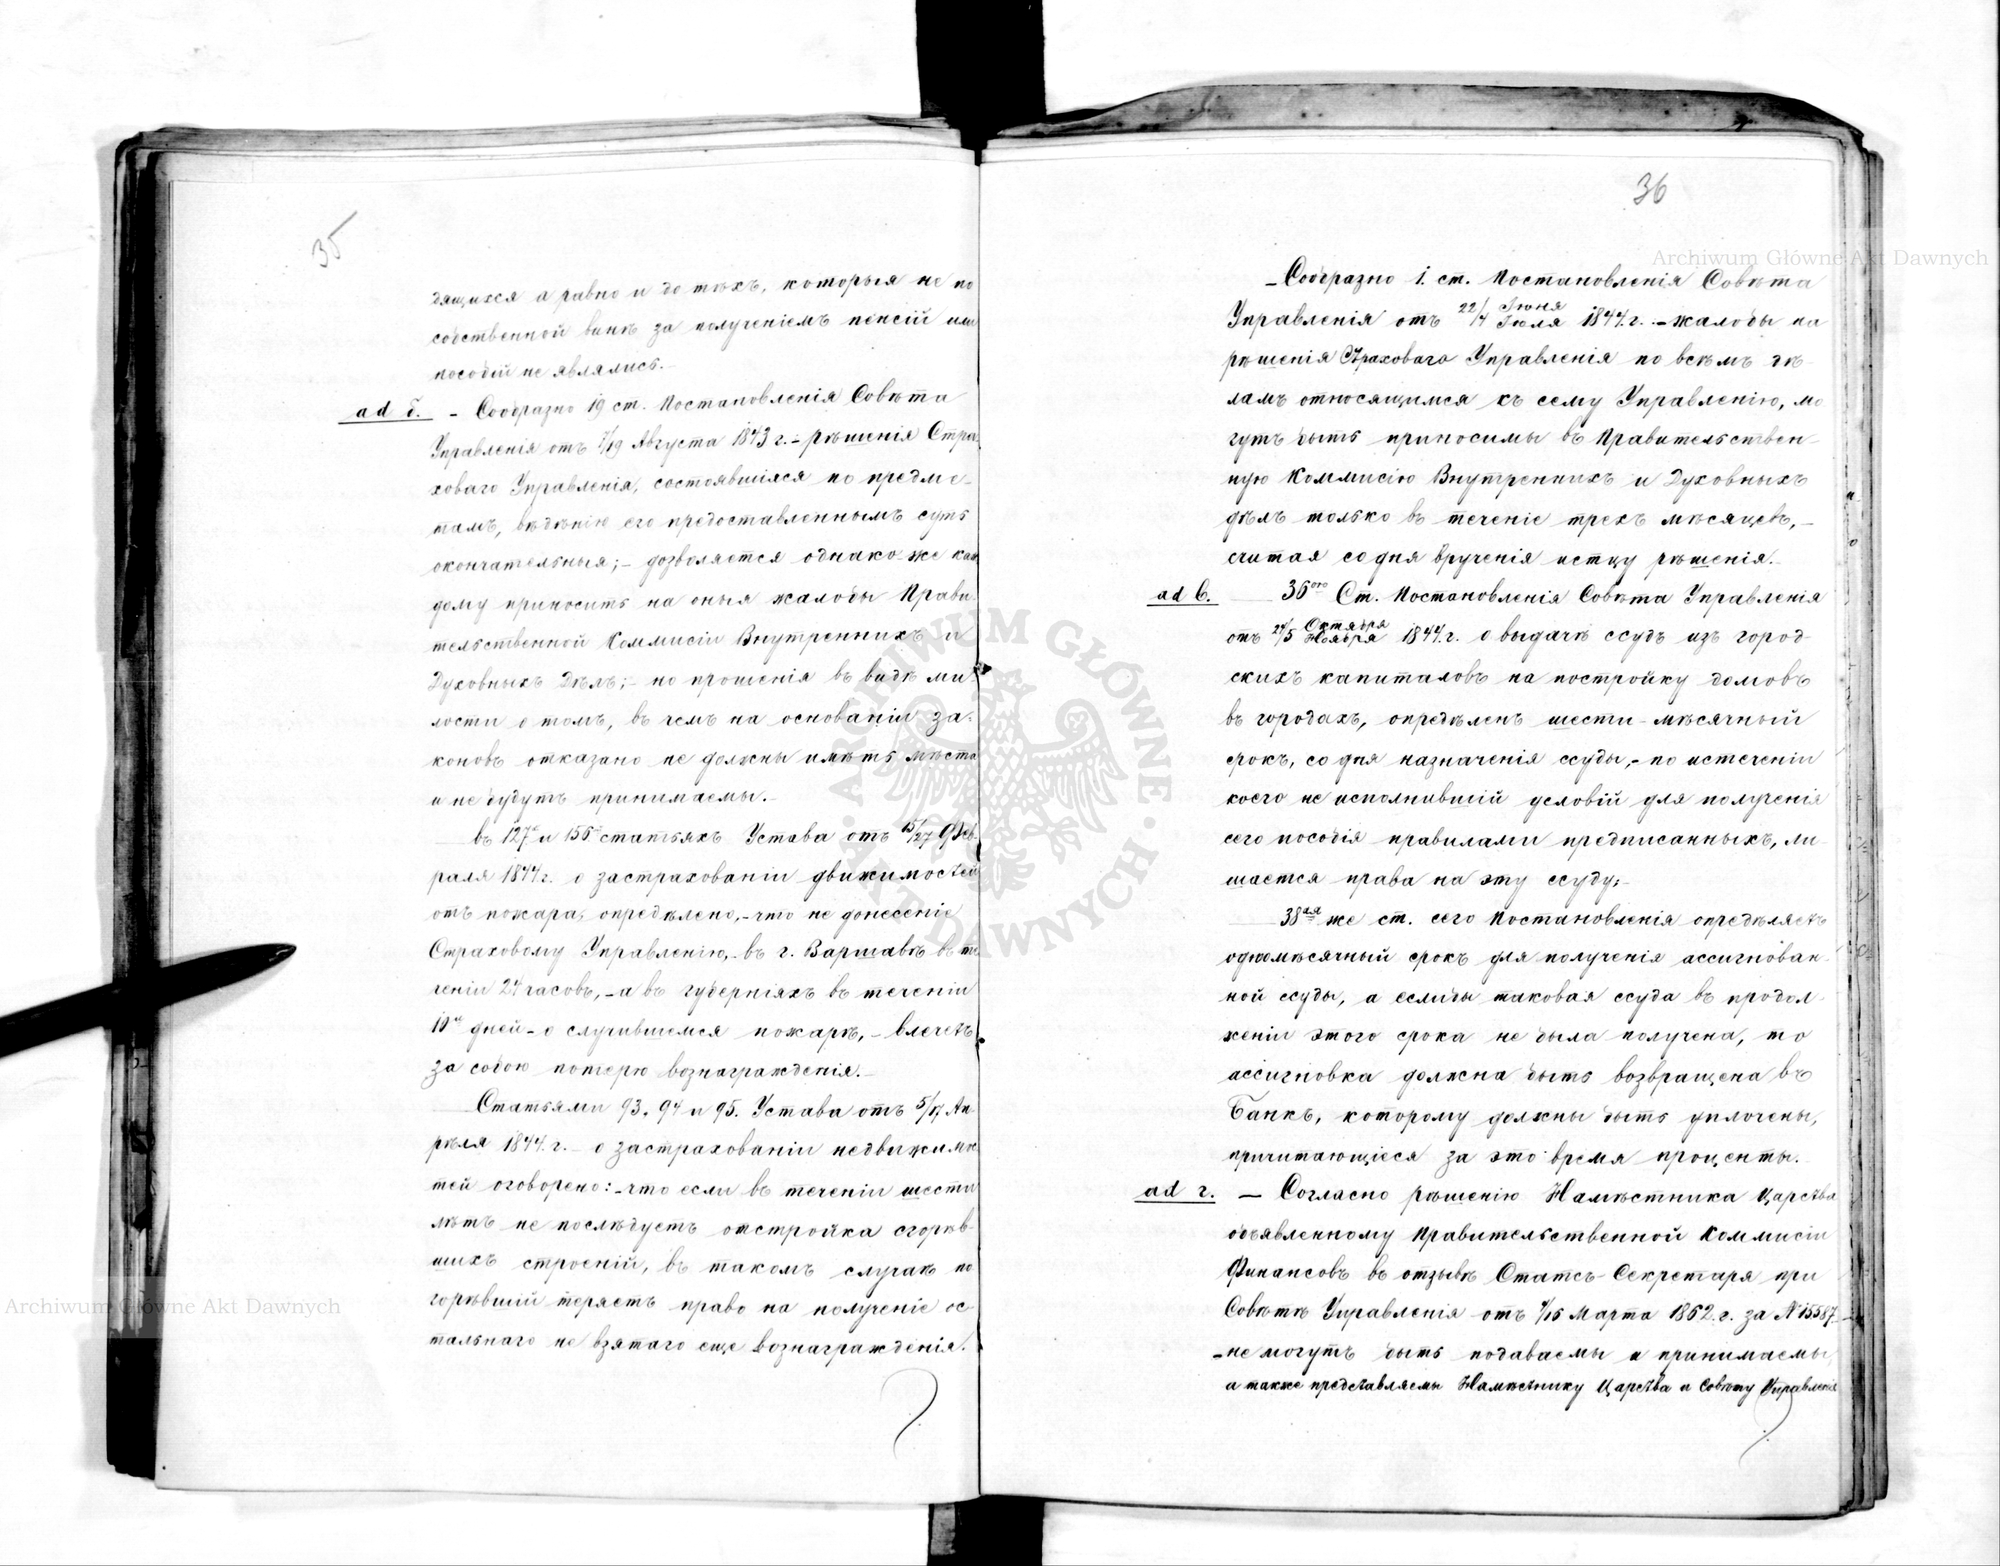 35
дящихся а равно и до тѣхъ, которыя не по
собственной винѣ за полученіемъ пенсій или
пособій не являлись.-
ad б. - Сообразно 19 ст. Постановленія Совѣта
Управленія отъ 7/19 Августа 1843 г. - рѣшенія Стра-
ховаго Управленія, состоявшіяся по предме-
тамъ, вѣдѣнію его предоставленнымъ суть
окончательныя; - дозволяется однако же каж
дому приносить на оныя жалобы Прави-
тельственной Коммисіи Внутреннихъ и
Духовныхъ Дѣлъ; - но прошенія въ видѣ ми
лости о томъ, въ чемъ на основаніи за-
коновъ отказано не должны имѣть мѣста
и не будутъ принимаемы.-
въ 127 и 156 статьяхъ Устава отъ 15/27 Фев-
раля 1844 г. о застрахованіи движимостей
отъ пожара, опредѣлено, - что не донесеніе
Страховому Управленію, - въ г. Варшавѣ въ те
ченіи 24 часовъ, - а въ губерніяхъ въ теченіи
10и дней - о случившемся пожарѣ, - влечетъ
за собою потерю вознагражденія.-
Статьями 93, 94 и 95. Устава отъ 5/17 Ап-
рѣля 1844. г. - о застрахованіи недвижимос
тей оговорено: - что если въ теченіи шести
лѣтъ не послѣдуетъ отстройка сгорѣв-
шихъ строеній, въ такомъ случаѣ по
горѣвшій теряетъ право на полученіе ос-
тальнаго не взятаго еще вознагражденія.
36
- Сообразно 1. ст. Постановленія Совѣта
Управленія отъ 22/4 Іюня/Іюля 1844. г. - жалобы на
рѣшенія Страховаго Управленія по всѣмъ дѣ-
ламъ относящимся къ сему Управленію, мо
гутъ быть приносимы въ Правительствен-
ную Коммисію Внутреннихъ и Духовныхъ
дѣлъ только въ теченіе трехъ мѣсяцевъ, -
считая со дня врученія истцу рѣшенія.-
ad в. 36ою Ст. Постановленія Совѣта Управленія
отъ 24/5 Октября/Ноября 1844. г. о выдачѣ ссудъ изъ город-
скихъ капиталовъ на постройку домовъ
въ городахъ, опредѣленъ шести-мѣсячный
срокъ, со дня назначенія ссуды, - по истеченіи
коего не исполнившій условій для полученія
сего пособія правилами предписанныхъ, ли-
шается права на эту ссуду; -
38ая же ст. сего Постановленія опредѣляетъ
одномѣсячный срокъ для полученія ассигнован-
ной ссуды, а еслибы таковая ссуда въ продол-
женіи этого срока не была получена, то
ассигновка должна быть возвращена въ
Банкъ, которому должны быть уплочены,
причитающіеся за это время проценты.
ad г. - Согласно рѣшенію Намѣстника Царства
объявленному Правительственной Коммисіи
Финансовъ въ отзывѣ Статсъ-Секретаря при
Совѣтѣ Управленія отъ 4/16 Марта 1852. г. за № 15587
- не могутъ быть подаваемы и принимаемы,
а также представляемы Намѣстнику Царства и Совѣту Управленія
Archiwum Główne Akt Dawnych
Archiwum Główne Akt Dawnych
ARCHIWUM GŁÓWNE AKT DAWNYCH